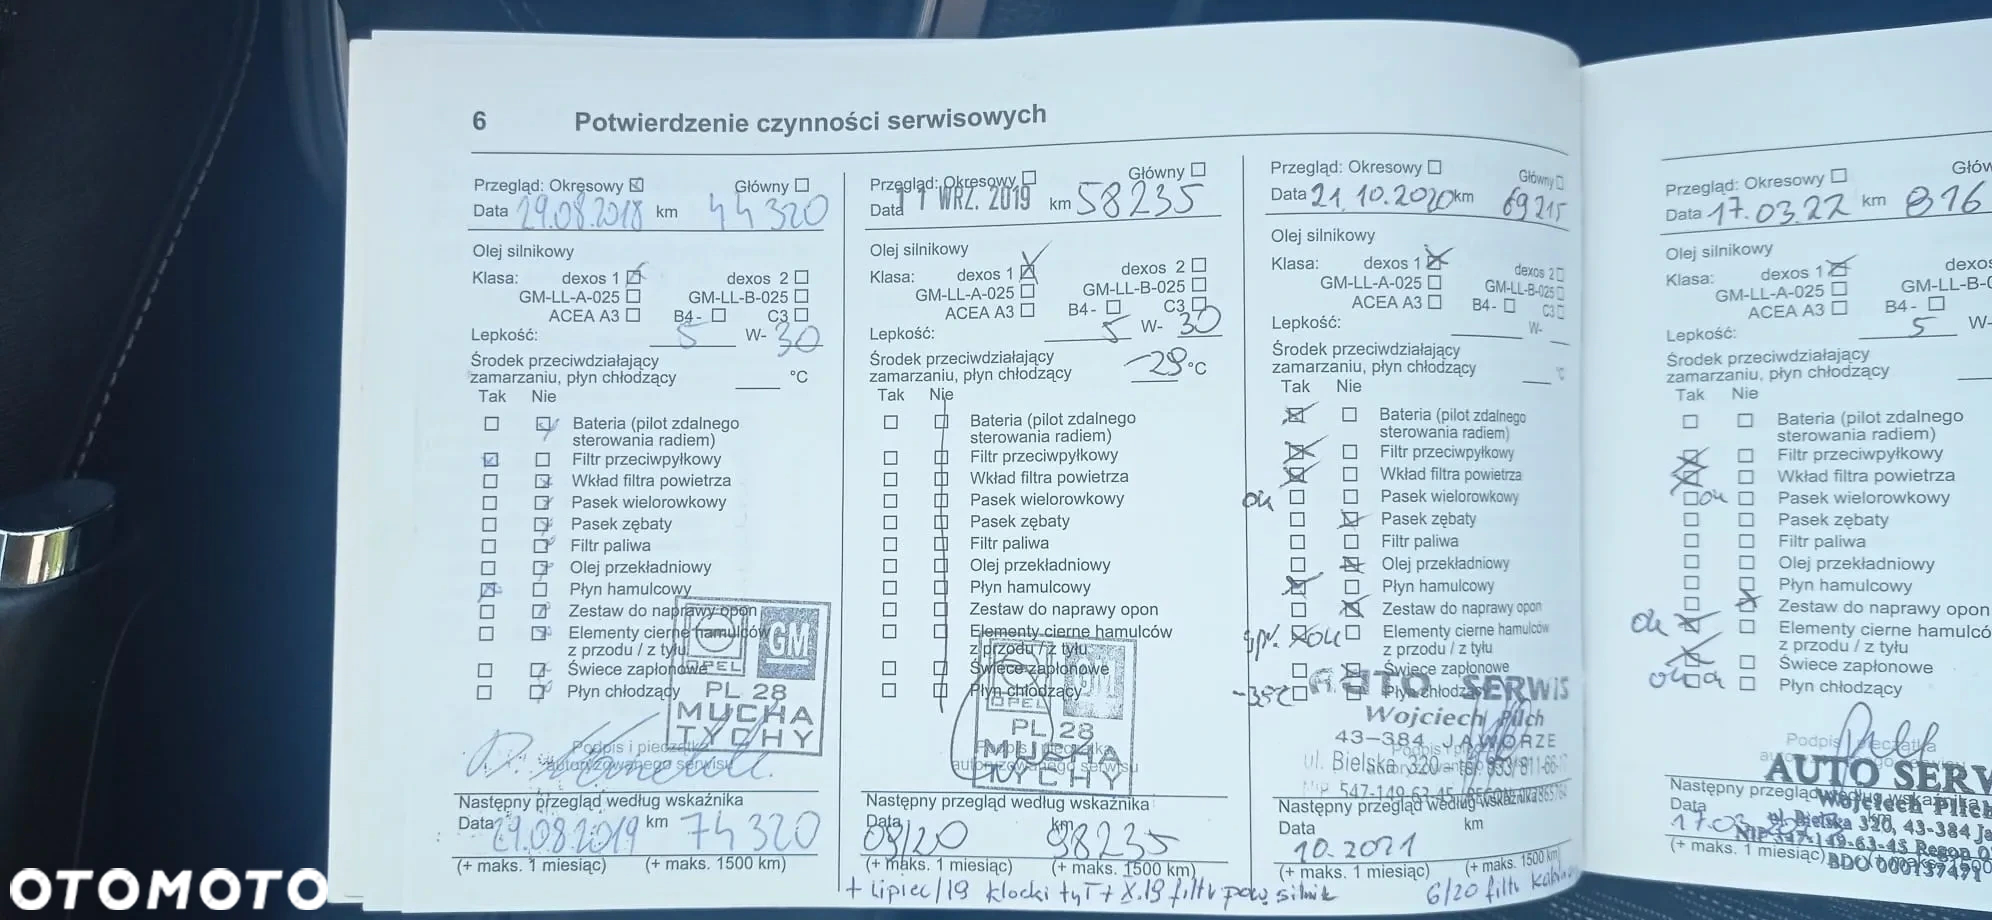 6 Potwierdzenie czynności serwisowych
Przegląd: Okresowy Główny
Data 29.08.2018 km 44 320
Olej silnikowy
Klasa: dexos 1 dexos 2
GM-LL-A-025 GM-LL-B-025
ACEA A3 B4- C3
Lepkość: 5 W- 30
Środek przeciwdziałający
zamarzaniu, płyn chłodzący °C
Tak Nie
Bateria (pilot zdalnego
sterowania radiem)
Filtr przeciwpyłkowy
Wkład filtra powietrza
Pasek wielorowkowy
Pasek zębaty
Filtr paliwa
Olej przekładniowy
Płyn hamulcowy
Zestaw do naprawy opon
Elementy cierne hamulców
z przodu / z tyłu
Świece zapłonowe
Płyn chłodzący
OPEL GM
PL 28
MUCHA
TYCHY
Podpis i pieczątka
autoryzowanego serwisu
Następny przegląd według wskaźnika
Data 29.08.2019 km 74320
(+ maks. 1 miesiąc) (+ maks. 1500 km)
Przegląd: Okresowy Główny
Data 11 WRZ. 2019 km 58235
Olej silnikowy
Klasa: dexos 1 dexos 2
GM-LL-A-025 GM-LL-B-025
ACEA A3 B4- C3
Lepkość: 5 W- 30
Środek przeciwdziałający
zamarzaniu, płyn chłodzący -29 °C
Tak Nie
Bateria (pilot zdalnego
sterowania radiem)
Filtr przeciwpyłkowy
Wkład filtra powietrza
Pasek wielorowkowy
Pasek zębaty
Filtr paliwa
Olej przekładniowy
Płyn hamulcowy
Zestaw do naprawy opon
Elementy cierne hamulców
z przodu / z tyłu
Świece zapłonowe
Płyn chłodzący
OPEL GM
PL 28
MUCHA
TYCHY
Podpis i pieczątka
autoryzowanego serwisu
Następny przegląd według wskaźnika
Data 09/20 km 98235
(+ maks. 1 miesiąc) (+ maks. 1500 km)
+ Lipiec/19 klocki tył + X.19 filtr pow. silnik
Przegląd: Okresowy Główny
Data 21.10.2020 km 69215
Olej silnikowy
Klasa: dexos 1 dexos 2
GM-LL-A-025 GM-LL-B-025
ACEA A3 B4- C3
Lepkość: W-
Środek przeciwdziałający
zamarzaniu, płyn chłodzący °C
Tak Nie
Bateria (pilot zdalnego
sterowania radiem)
Filtr przeciwpyłkowy
Wkład filtra powietrza
ok Pasek wielorowkowy
Pasek zębaty
Filtr paliwa
Olej przekładniowy
Płyn hamulcowy
Zestaw do naprawy opon
spr. ok Elementy cierne hamulców
z przodu / z tyłu
Świece zapłonowe
-35°C Płyn chłodzący
AUTO SERWIS
Wojciech Pilch
43-384 JAWORZE
ul. Bielska 320
NIP 547-149-63-45
Następny przegląd według wskaźnika
Data 10.2021 km
(+ maks. 1 miesiąc) (+ maks. 1500 km)
6/20 filtr
Przegląd: Okresowy Głów
Data 17.03.22 km 816
Olej silnikowy
Klasa: dexos 1 dexos
GM-LL-A-025 GM-LL-B-0
ACEA A3 B4-
Lepkość: 5 W-
Środek przeciwdziałający
zamarzaniu, płyn chłodzący
Tak Nie
Bateria (pilot zdalnego
sterowania radiem)
Filtr przeciwpyłkowy
Wkład filtra powietrza
ok Pasek wielorowkowy
Pasek zębaty
Filtr paliwa
Olej przekładniowy
Płyn hamulcowy
Zestaw do naprawy opon
ok Elementy cierne hamulcó
z przodu / z tyłu
Świece zapłonowe
Płyn chłodzący
Podpis i pieczątka
AUTO SERW
Wojciech Pilch
ul. Bielska 320, 43-384 Ja
NIP 547-149-63-45 Regon 0
BDO 000137471
Następny przegląd
Data
(+ maks. 1 miesiąc)
OTOMOTO